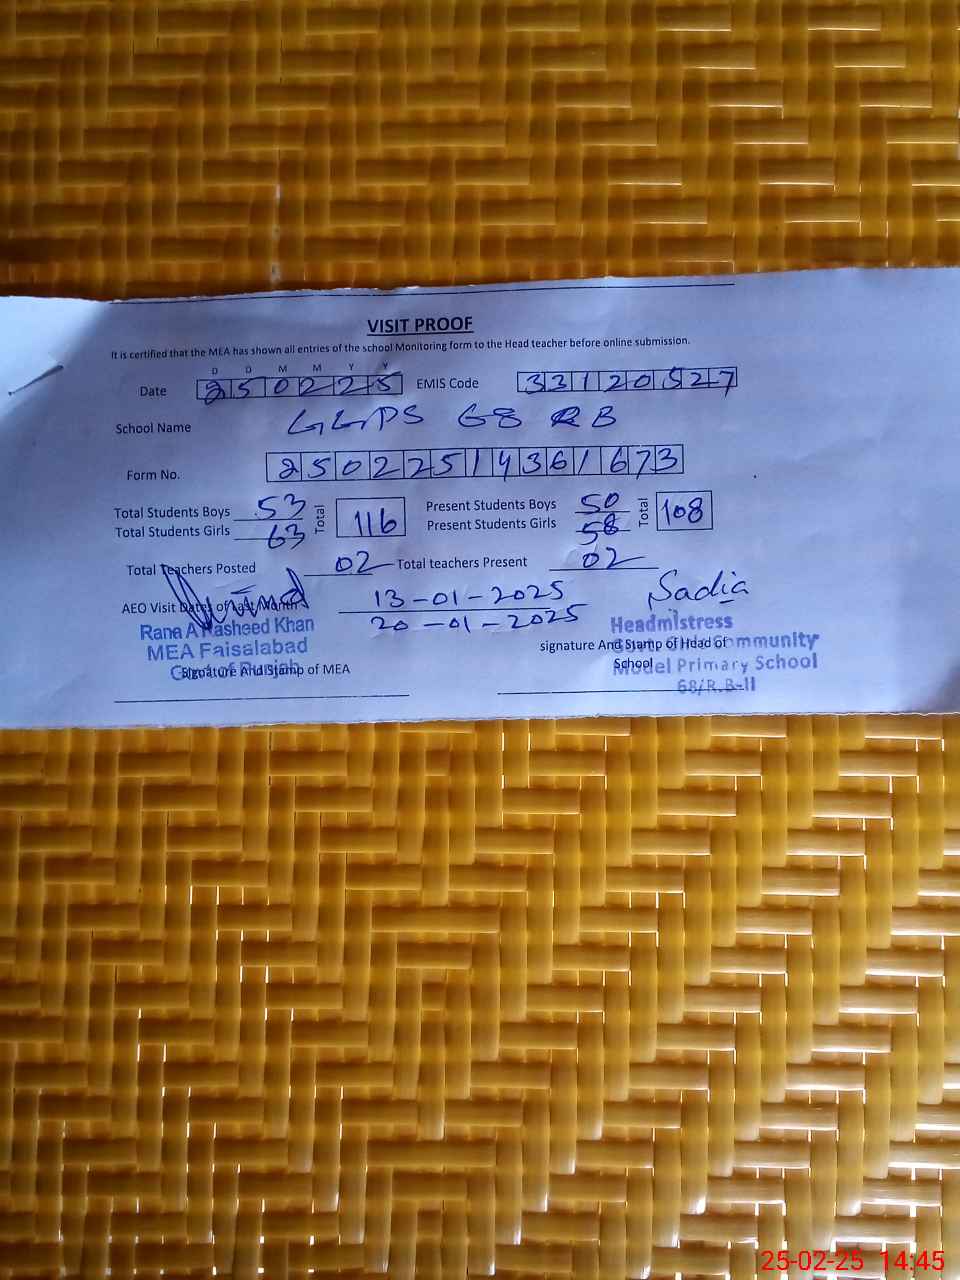 VISIT PROOF
It is certified that the MEA has shown all entries of the school Monitoring form to the Head teacher before online submission.
D D M M Y Y
Date 250225 EMIS Code 33120527
School Name GGPS 68 RB
Form No. 25022514361673
Total Students Boys 53 Total 116 Present Students Boys 50 Total 108
Total Students Girls 63 Present Students Girls 58
Total Teachers Posted 02 Total teachers Present 02
AEO Visit Dates of Last Month 13-01-2025
20-01-2025
Sadia
Rana A Rasheed Khan
MEA Faisalabad
Govt of Punjab
Signature And Stamp of MEA
Headmistress
Community
Model Primary School
68/R.B-II
signature And Stamp of Head of
School
25-02-25 14:45